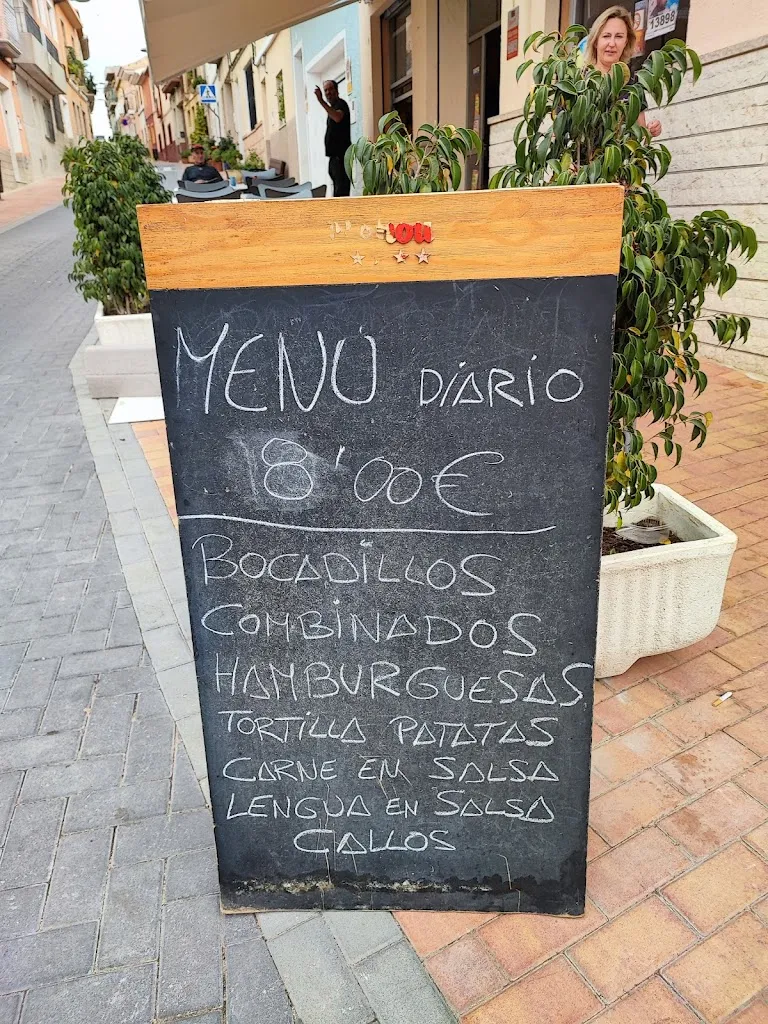 13898
MENÚ DIARIO
18'00€
BOCADILLOS
COMBINADOS
HAMBURGUESAS
TORTILLA PATATAS
CARNE EN SALSA
LENGUA EN SALSA
CALLOS